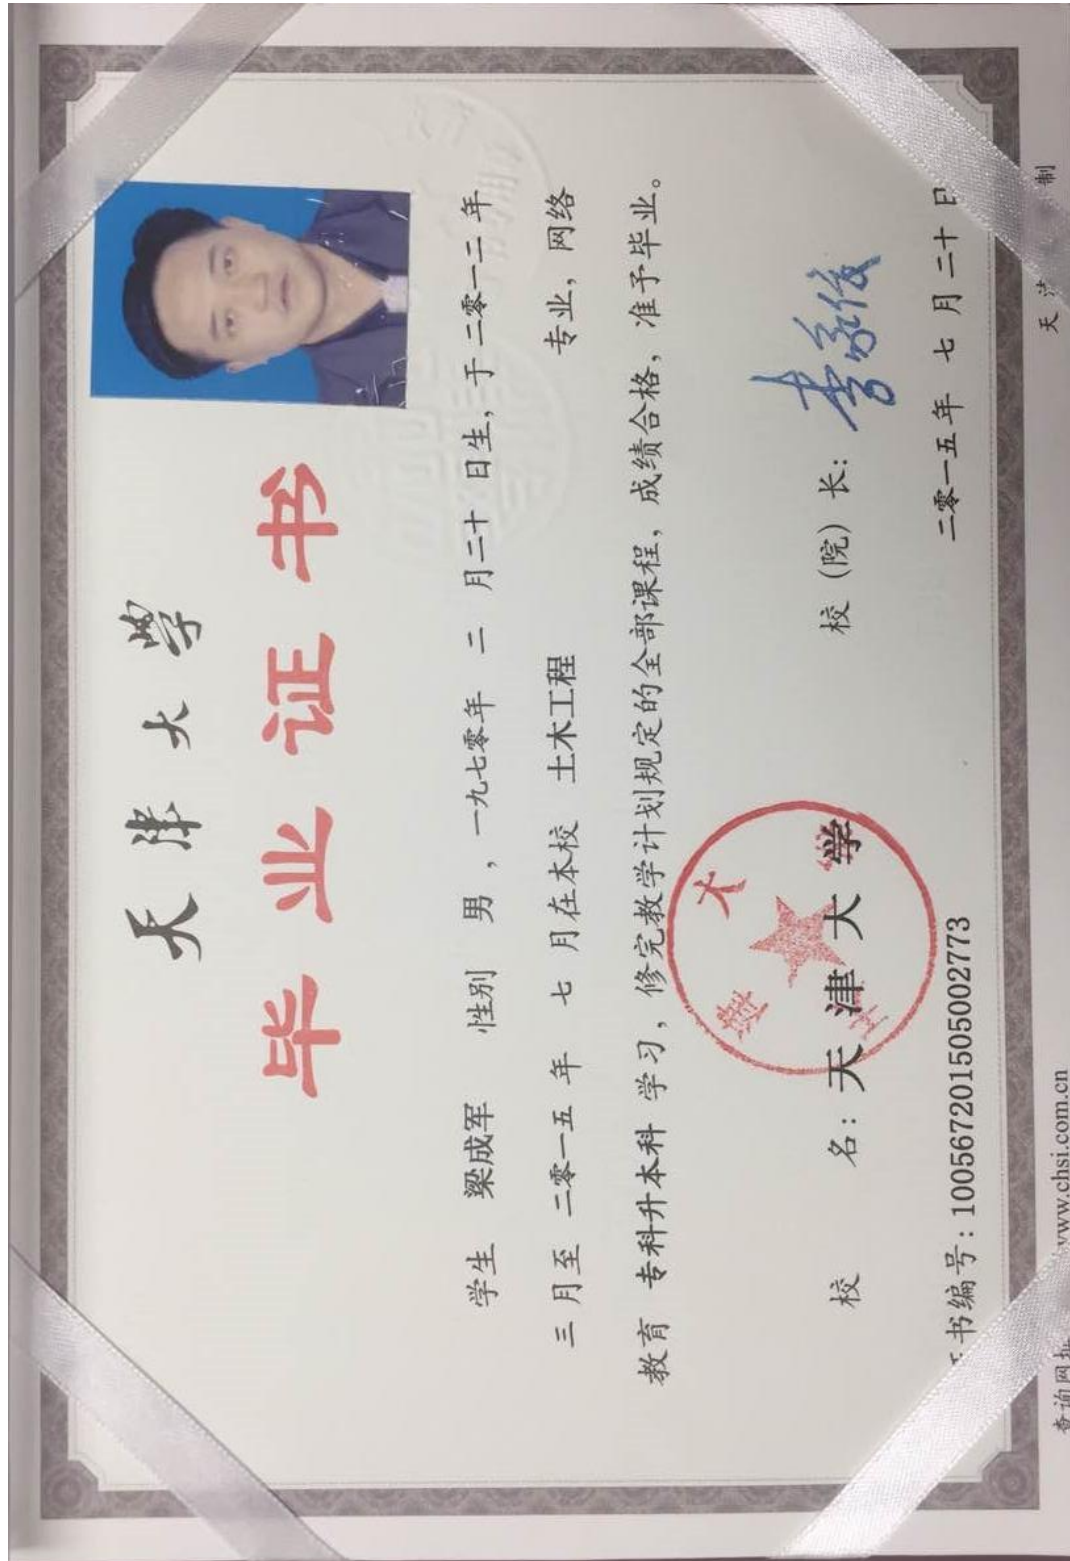 天津大学
毕业证书
学生 梁成军 性别 男，一九七零年 二 月二十 日生，于二零一二年
三 月至 二零一五 年 七 月在本校 土木工程 专业，网络
教育 专科升本科 学习，修完教学计划规定的全部课程，成绩合格，准予毕业。
校 名：天津大学 校（院）长：
书编号：100567201505002773 二零一五年 七 月 二十 日
查询网址 www.chsi.com.cn 天 制
天津大学